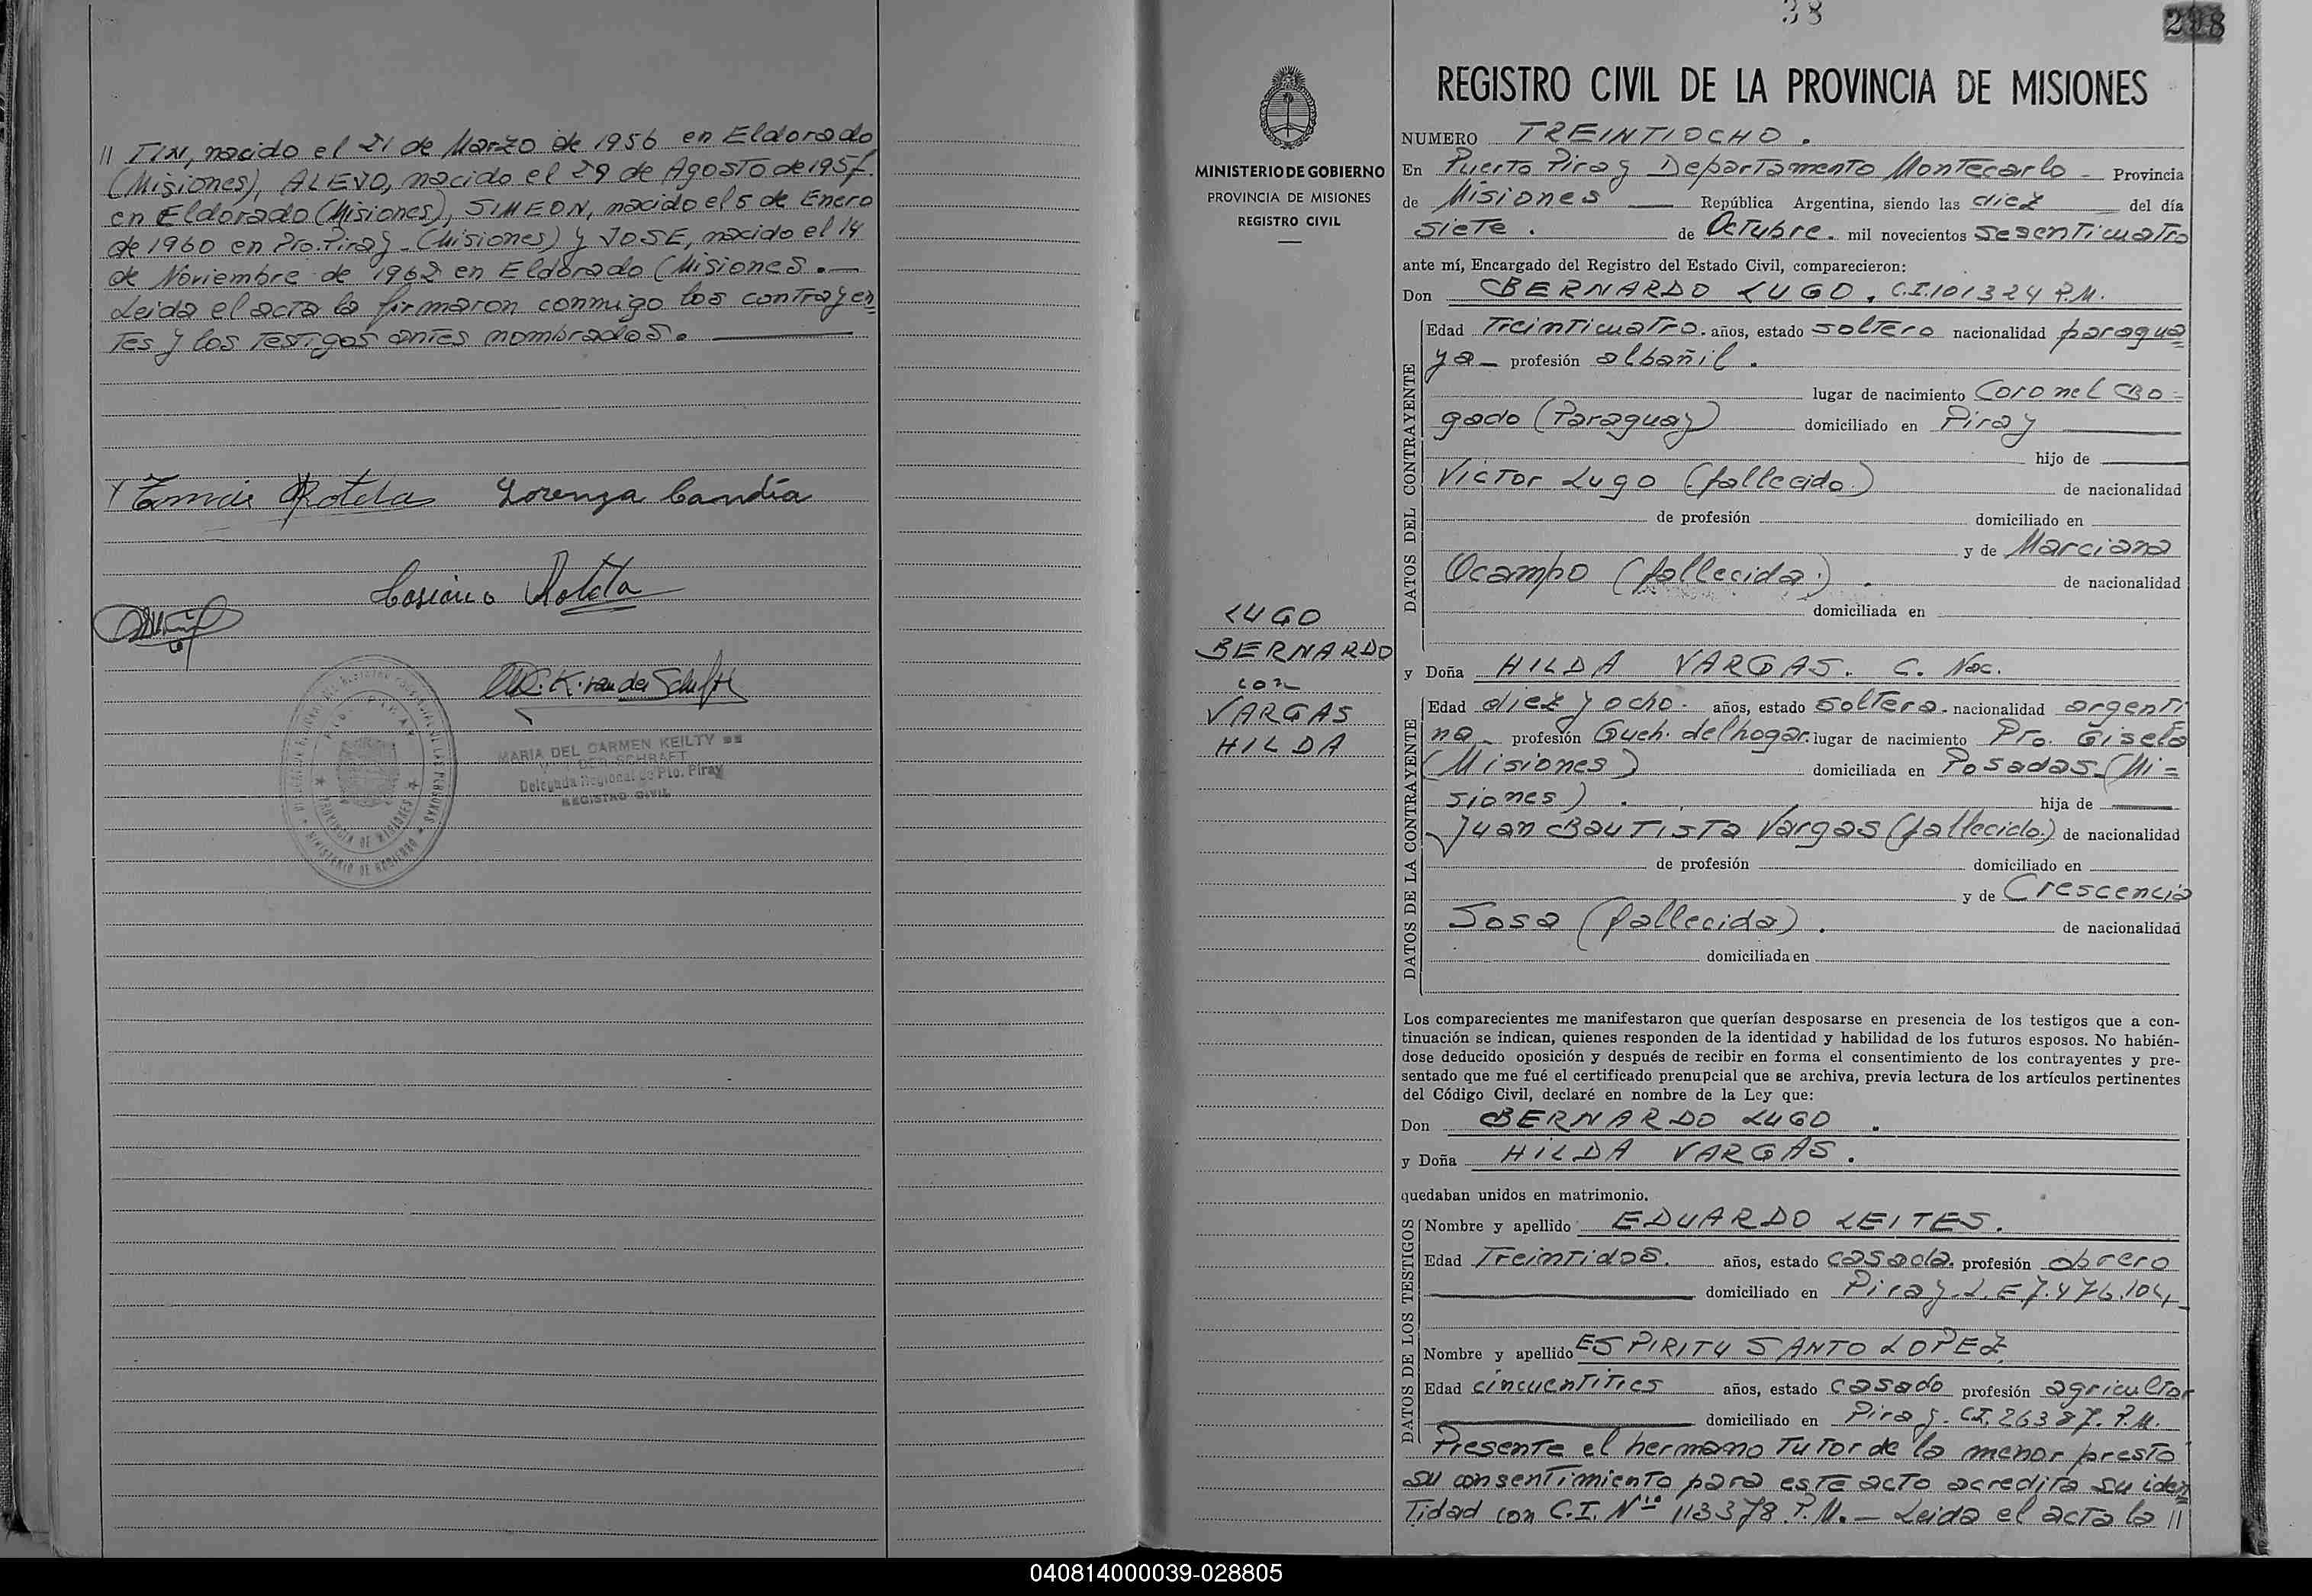 // TIN, nacido el 21 de Marzo de 1956 en Eldorado
(Misiones), ALEJO, nacido el 29 de Agosto de 195
en Eldorado (Misiones), SIMEON, nacido el 5 de Enero
de 1960 en Pto. Piray - (Misiones) y JOSE, nacido el 14
de Noviembre de 1962 en Eldorado (Misiones.—
Leida el acta la firmaron conmigo los contrayen=
tes y los testigos antes nombrados.
Rotela Lorenza Candia
Casiano Rotela
MARIA DEL CARMEN KEILTY
V. DER SCHRAFT
Delegada Regional de Pto. Piray
REGISTRO CIVIL
PROVINCIA DE MISIONES
MINISTERIO DE GOBIERNO
MINISTERIO DE GOBIERNO
PROVINCIA DE MISIONES
REGISTRO CIVIL
LUGO
BERNARDO
con
VARGAS
HILDA
38
REGISTRO CIVIL DE LA PROVINCIA DE MISIONES
NUMERO TREINTIOCHO.
En Puerto Piray Departamento Montecarlo - Provincia
de Misiones — República Argentina, siendo las diez del día
siete. de Octubre. mil novecientos sesenticuatro
ante mí, Encargado del Registro del Estado Civil, comparecieron:
Don BERNARDO LUGO. C.I.101324 P.M.
DATOS DEL CONTRAYENTE
Edad Treinticuatro. años, estado soltero nacionalidad paragua=
ya - profesión albañil.
lugar de nacimiento Coronel Bo=
gado (Paraguay) domiciliado en Piray
hijo de
Victor Lugo (fallecido) de nacionalidad
de profesión domiciliado en
y de Marciana
Ocampo (fallecida). de nacionalidad
domiciliada en
y Doña HILDA VARGAS. C. Nac.
DATOS DE LA CONTRAYENTE
Edad diez y ocho. años, estado soltera. nacionalidad argenti
na - profesión Queh. del hogar. lugar de nacimiento Pto. Gisela
(Misiones) domiciliada en Posadas (Mi=
siones). hija de
Juan Bautista Vargas (fallecido) de nacionalidad
de profesión domiciliado en
y de Crescencia
Sosa (fallecida). de nacionalidad
domiciliada en
Los comparecientes me manifestaron que querían desposarse en presencia de los testigos que a con-
tinuación se indican, quienes responden de la identidad y habilidad de los futuros esposos. No habién-
dose deducido oposición y después de recibir en forma el consentimiento de los contrayentes y pre-
sentado que me fué el certificado prenupcial que se archiva, previa lectura de los artículos pertinentes
del Código Civil, declaré en nombre de la Ley que:
Don BERNARDO LUGO.
y Doña HILDA VARGAS.
quedaban unidos en matrimonio.
DATOS DE LOS TESTIGOS
Nombre y apellido EDUARDO LEITES.
Edad Treintidos. años, estado casado. profesión obrero
domiciliado en Piray. L.E 7.476.104
Nombre y apellido ESPIRITU SANTO LOPEZ
Edad cincuentitres años, estado casado profesión agricultor
domiciliado en Piray. C.I. 26387. P.M.
Presente el hermano Tutor de la menor presto
su consentimiento para este acto acredita su iden=
tidad con C.I. Nº 113378 P.M. — Leida el acta la //
040814000039-028805